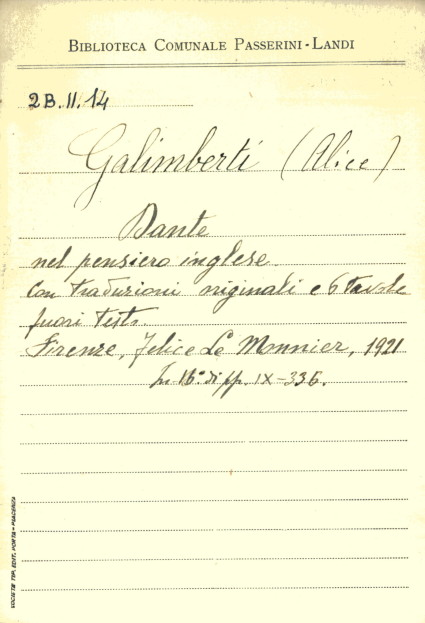 BIBLIOTECA COMUNALE PASSERINI-LANDI
2B.II.14
Galimberti (Alice)
Dante
nel pensiero inglese
con traduzioni originali e 6 tavole
fuori testo.
Firenze, Felice Le Monnier, 1921
In 16° di pp. IX-335.
SOCIETÀ TIP. EDIT. PORTA - PIACENZA